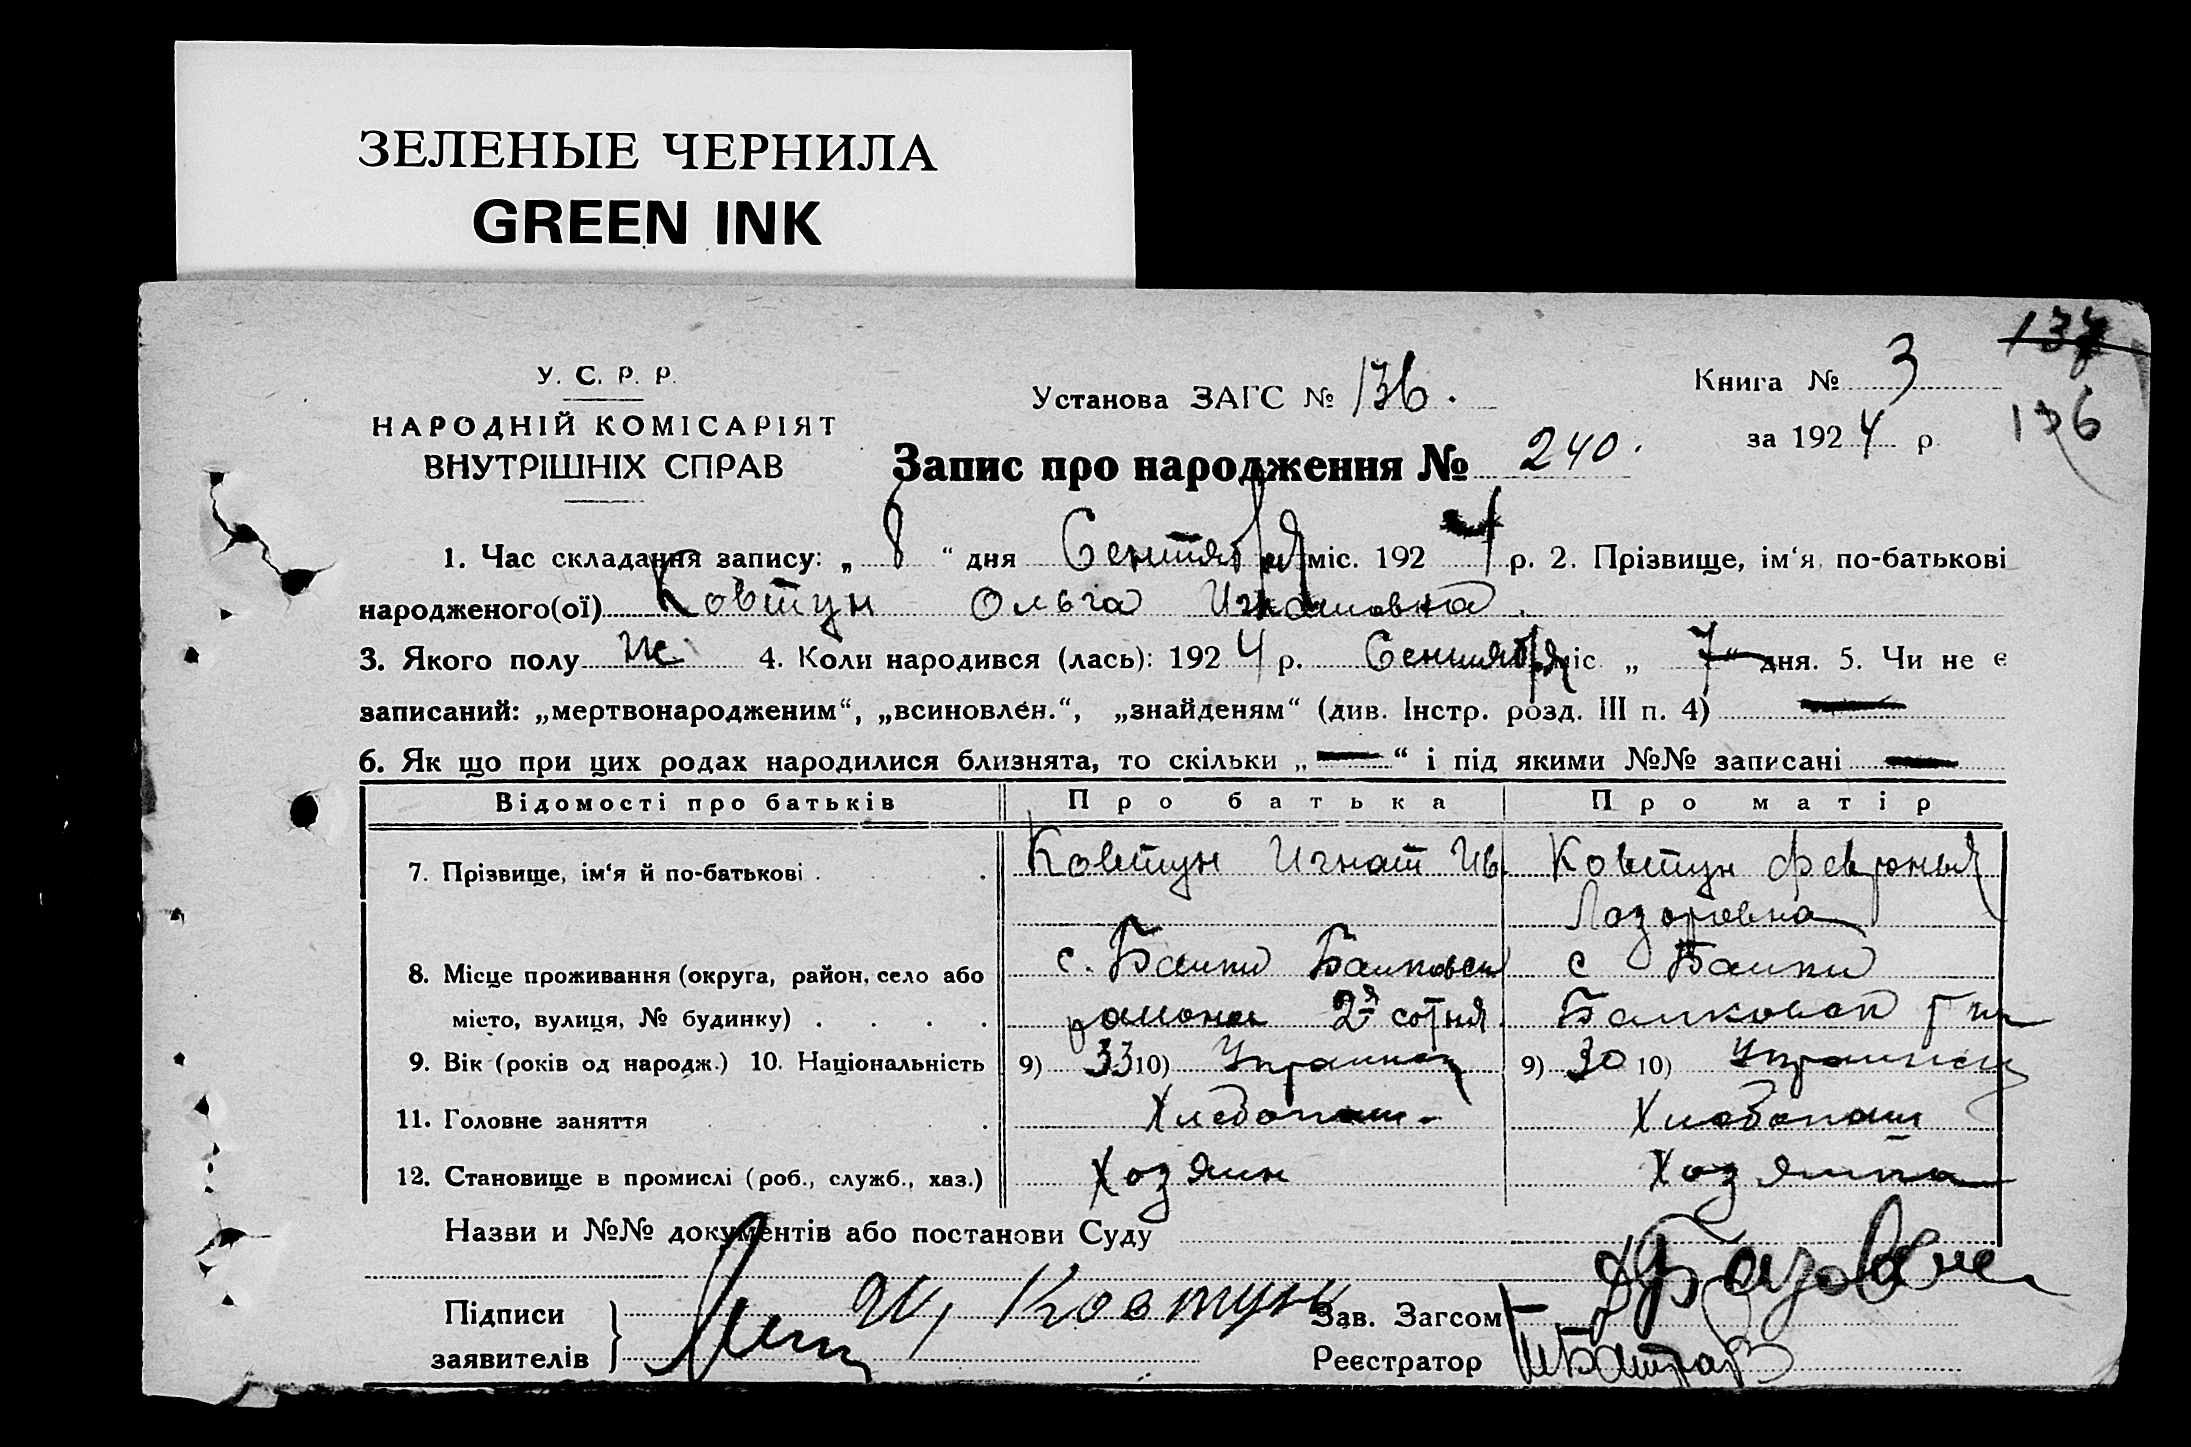 ЗЕЛЕНЫЕ ЧЕРНИЛА
GREEN INK
137
У. С. Р. Р.
НАРОДНІЙ КОМІСАРІЯТ
ВНУТРІШНІХ СПРАВ
Установа ЗАГС № 136.
Книга № 3
за 1924 р.
136
Запис про народження № 240.
1. Час складання запису: „ 8 “ дня Сентября міс. 1924 р. 2. Прізвище, ім‘я, по-батькові
народженого(ої) Ковтун Ольга Игнатовна.
3. Якого полу ж 4. Коли народився (лась): 1924 р. Сентября міс. „ 7 “ дня. 5. Чи не є
записаний: „мертвонародженим“, „всиновлен.“, „знайденям“ (див. Інстр. розд. III п. 4) —
6. Як що при цих родах народилися близнята, то скільки „ — “ і під якими №№ записані —
Відомості про батьків Про батька Про матір
7. Прізвище, ім‘я й по-батькові . . Ковтун Игнат Ив. Ковтун Февронья
Лазаровна
8. Місце проживання (округа, район, село або с. Балки Балковск с Балки
місто, вулиця, № будинку) . . . . района 2я сотня Балковск
9. Вік (років од народж.) 10. Національність 9) 33 10) Украинец 9) 30 10)
11. Головне заняття . Хлебопаш. Хлебопаш
12. Становище в промислі (роб., служб., хаз.) Хозяин Хозяйка
Назви и №№ документів або постанови Суду
Підписи И, Ковтун Зав. Загсом
заявителів Реєстратор